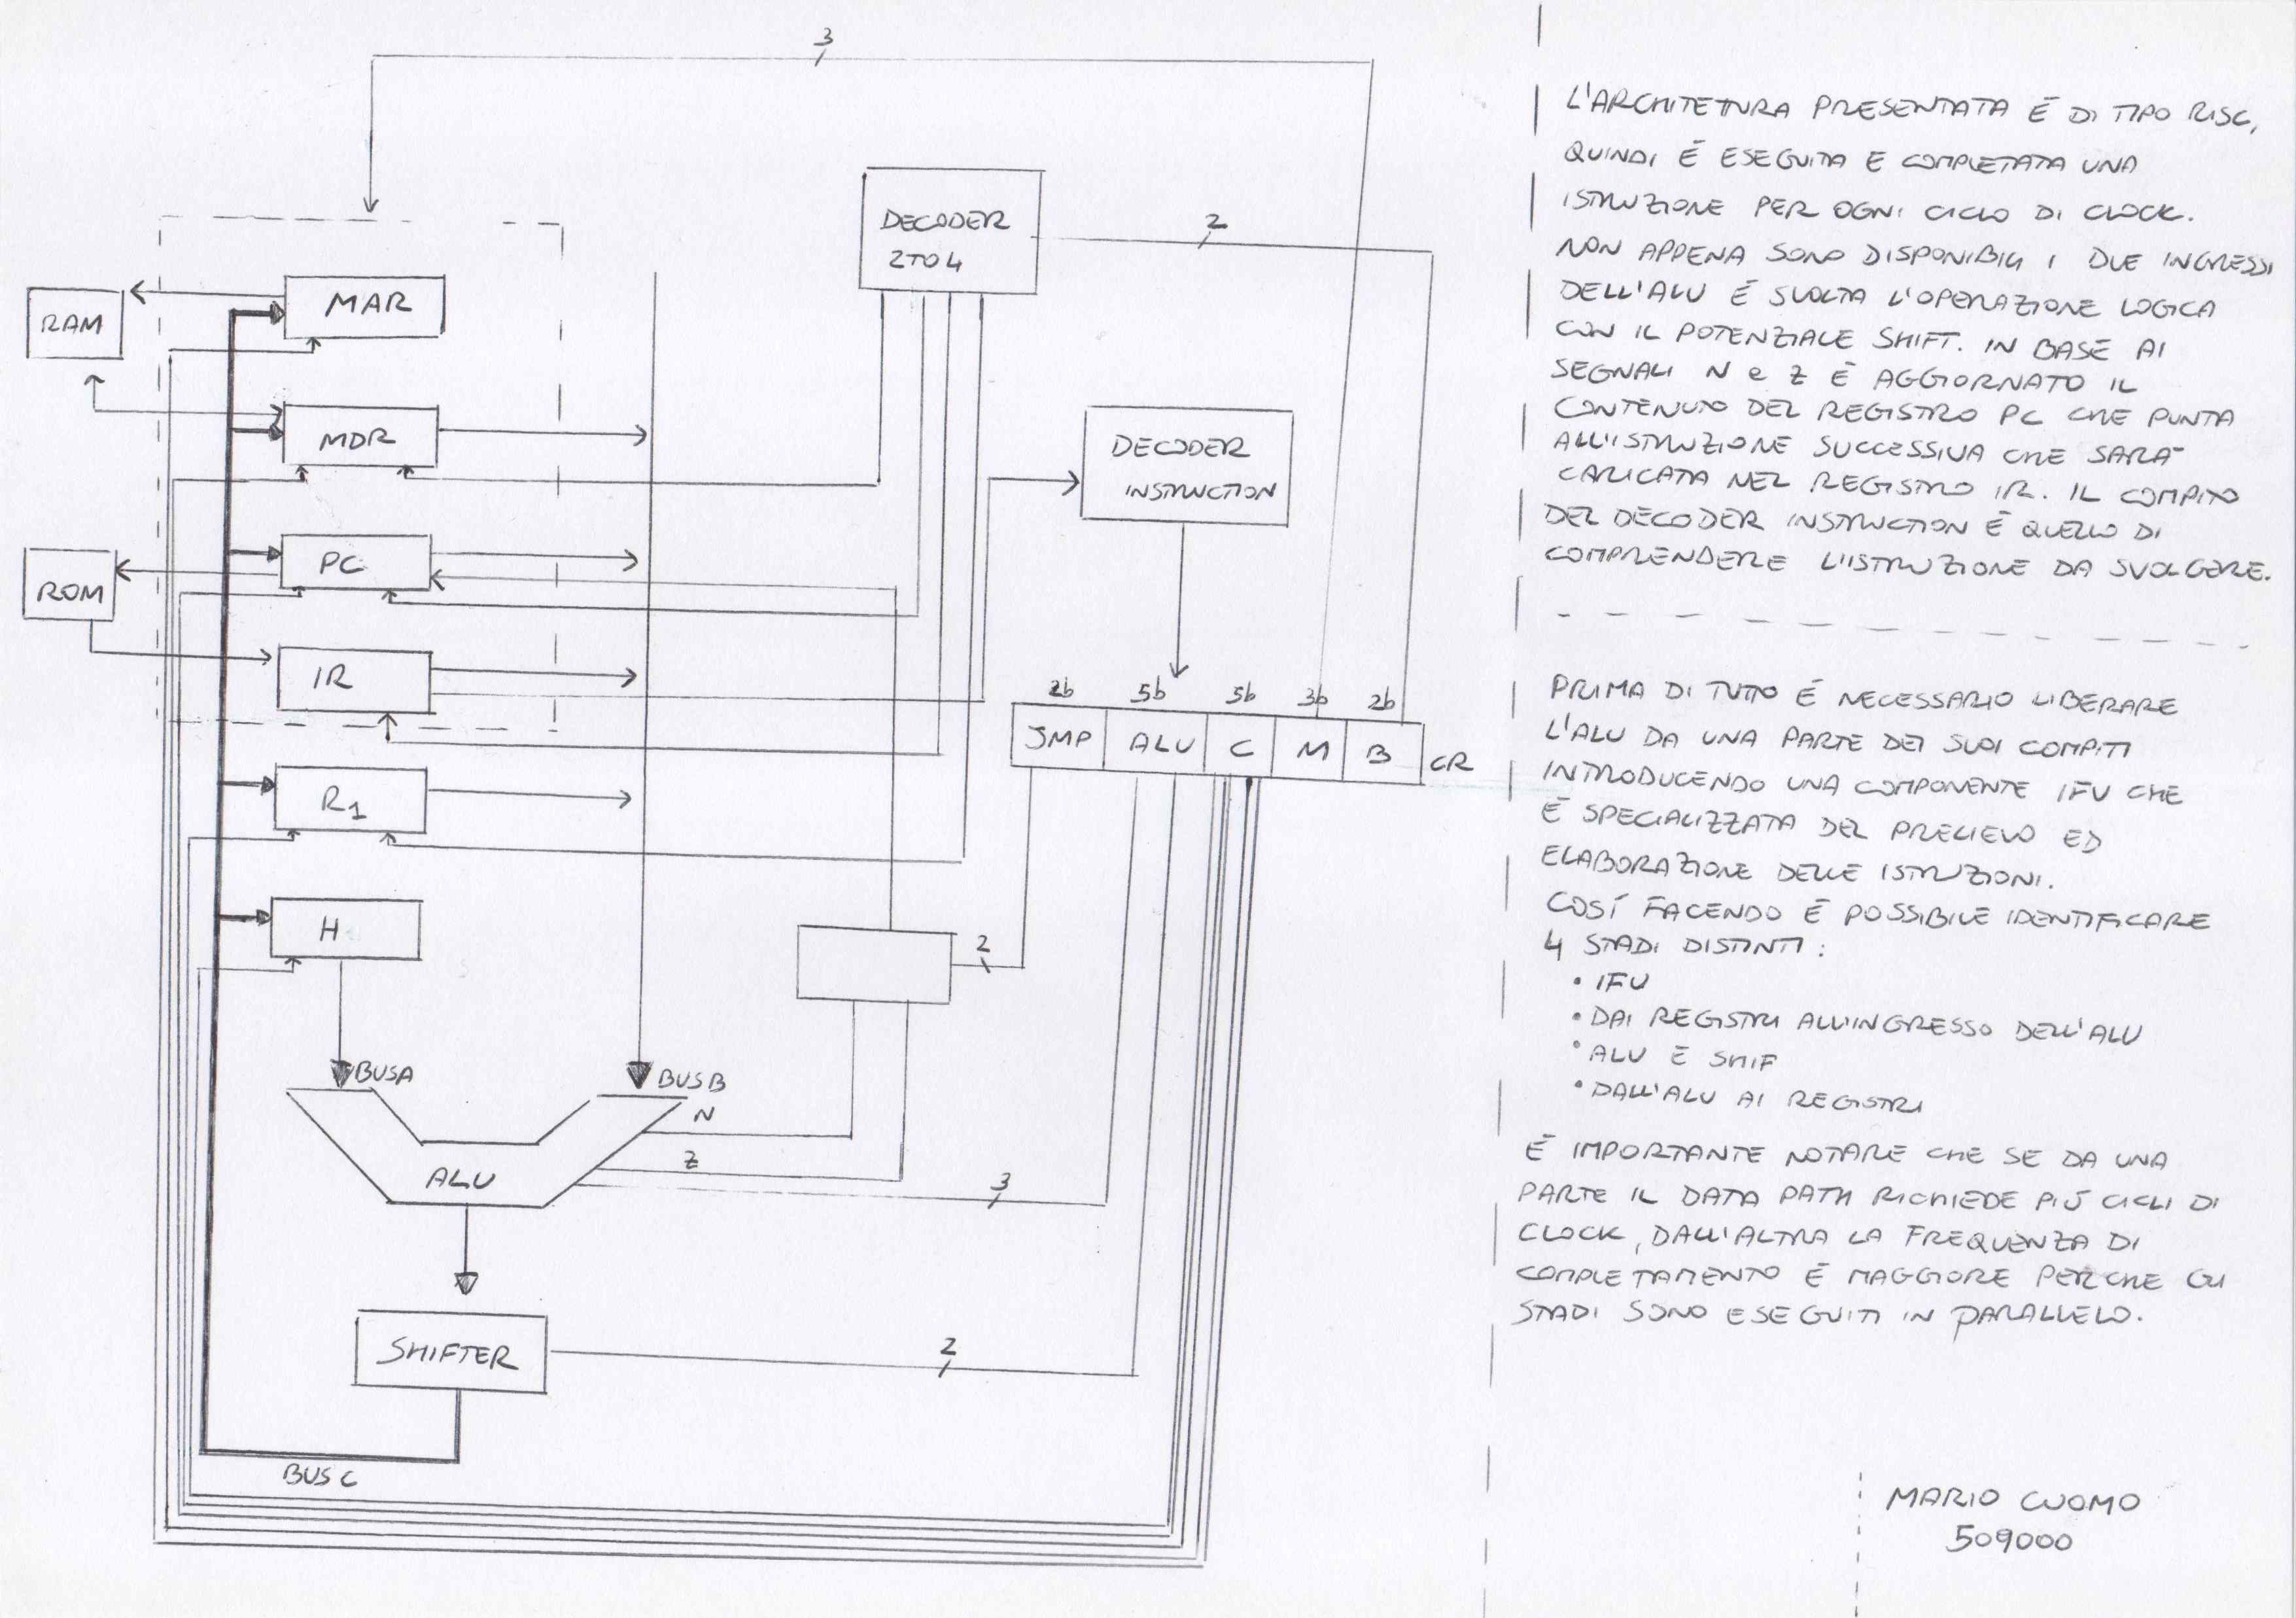 3
DECODER
2TO4
2
MAR
RAM
MDR
DECODER
INSTRUCTION
PC
ROM
IR
2b 5b 5b 3b 2b
JMP ALU C M B CR
R1
H
2
BUSA
BUSB
N
Z
ALU
3
SHIFTER
2
BUS C
L'ARCHITETTURA PRESENTATA È DI TIPO RISC,
QUINDI È ESEGUITA E COMPLETATA UNA
ISTRUZIONE PER OGNI CICLO DI CLOCK.
NON APPENA SONO DISPONIBILI I DUE INGRESSI
DELL'ALU È SVOLTA L'OPERAZIONE LOGICA
CON IL POTENZIALE SHIFT. IN BASE AI
SEGNALI N e Z È AGGIORNATO IL
CONTENUTO DEL REGISTRO PC CHE PUNTA
ALL'ISTRUZIONE SUCCESSIVA CHE SARÀ
CARICATA NEL REGISTRO IR. IL COMPITO
DEL DECODER INSTRUCTION È QUELLO DI
COMPRENDERE L'ISTRUZIONE DA SVOLGERE.
PRIMA DI TUTTO È NECESSARIO LIBERARE
L'ALU DA UNA PARTE DEI SUOI COMPITI
INTRODUCENDO UNA COMPONENTE IFU CHE
È SPECIALIZZATA DEL PRELIEVO ED
ELABORAZIONE DELLE ISTRUZIONI.
COSÍ FACENDO È POSSIBILE IDENTIFICARE
4 STADI DISTINTI:
• IFU
• DAI REGISTRI ALL'INGRESSO DELL'ALU
• ALU E SHIF
• DALL'ALU AI REGISTRI
È IMPORTANTE NOTARE CHE SE DA UNA
PARTE IL DATA PATH RICHIEDE PIÚ CICLI DI
CLOCK, DALL'ALTRA LA FREQUENZA DI
COMPLETAMENTO È MAGGIORE PERCHE GLI
STADI SONO ESEGUITI IN PARALLELO.
MARIO CUOMO
509000